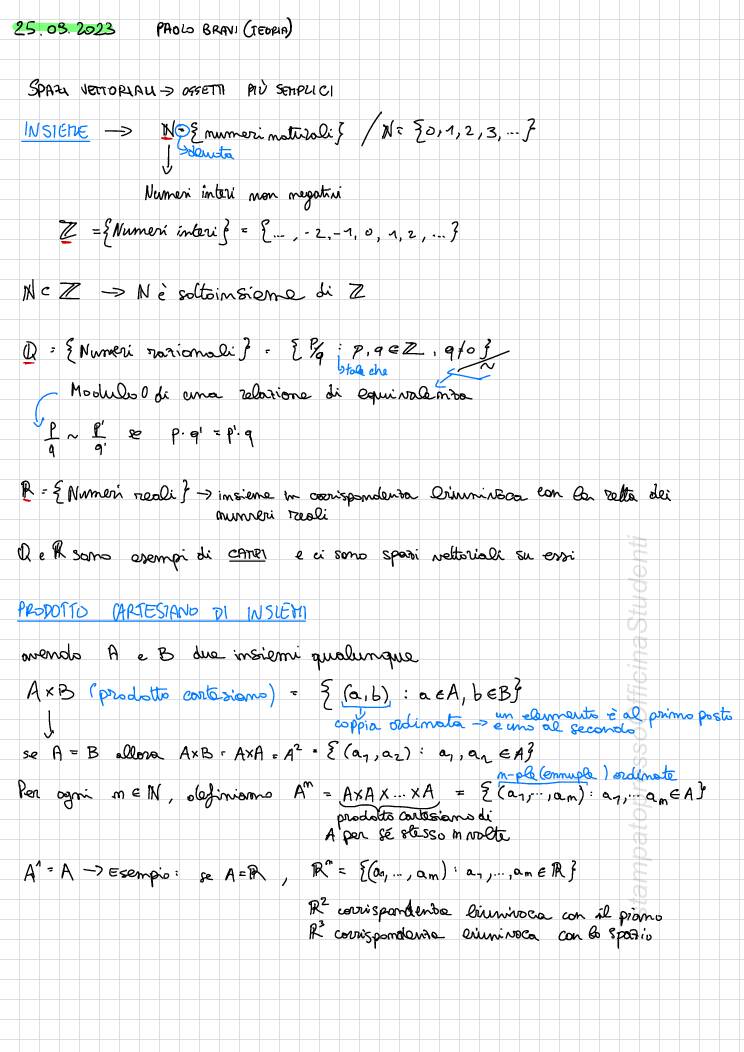 25.09.2023 PAOLO BRAVI (TEORIA)
SPAZI VETTORIALI → OGGETTI PIÙ SEMPLICI
INSIEME → ℕ = {numeri naturali} / ℕ = {0, 1, 2, 3, ...}
↳ denota
Numeri interi non negativi
ℤ = {Numeri interi} = {..., -2, -1, 0, 1, 2, ...}
ℕ ⊂ ℤ → ℕ è sottoinsieme di ℤ
ℚ = {Numeri razionali} = {p/q : p, q ∈ ℤ, q ≠ 0} / ~
↳ tale che
Modulo di una relazione di equivalenza
p/q ~ p'/q' se p·q' = p'·q
ℝ = {Numeri reali} → insieme in corrispondenza biunivoca con la retta dei
numeri reali
ℚ e ℝ sono esempi di CAMPI e ci sono spazi vettoriali su essi
PRODOTTO CARTESIANO DI INSIEMI
avendo A e B due insiemi qualunque
A × B (prodotto cartesiano) = {(a, b) : a ∈ A, b ∈ B}
coppia ordinata → un elemento è al primo posto
e uno al secondo
se A = B allora A×B = A×A = A² = {(a₁, a₂) : a₁, a₂ ∈ A}
n-ple (ennuple) ordinate
Per ogni n ∈ ℕ, definiamo Aⁿ = A×A×...×A = {(a₁, ..., aₙ) : a₁, ... aₙ ∈ A}
prodotto cartesiano di
A per sé stesso n volte
A¹ = A → Esempio: se A = ℝ, ℝⁿ = {(a₁, ..., aₙ) : a₁, ..., aₙ ∈ ℝ}
ℝ² corrispondenza biunivoca con il piano
ℝ³ corrispondenza biunivoca con lo spazio